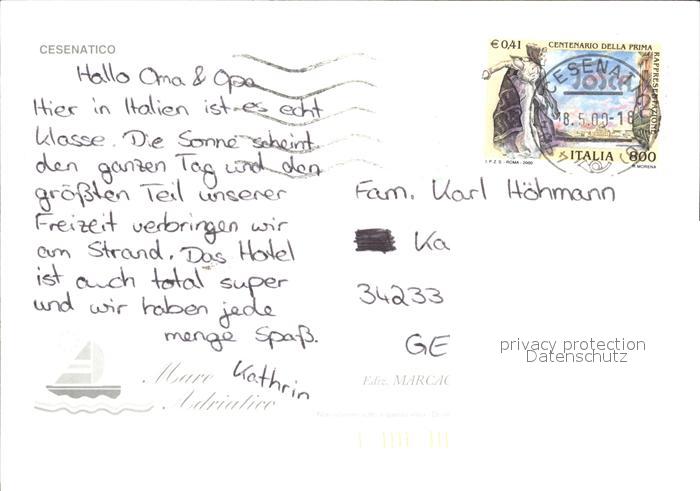 CESENATICO
Hallo Oma & Opa
Hier in Italien ist es echt
klasse. Die Sonne scheint
den ganzen Tag und den
größten Teil unserer
Freizeit verbringen wir
am Strand. Das Hotel
ist auch total super
und wir haben jede
menge Spaß.
Kathrin
Mare
Adriatico
Ediz. MARCAC
€ 0,41 CENTENARIO DELLA PRIMA
RAPPRESENTAZIONE
TOSCA
CESENA
18.5.00-18
I.P.Z.S. - ROMA - 2000
ITALIA 800
R. MORENA
Fam. Karl Höhmann
Ka
34233
GE
privacy protection
Datenschutz